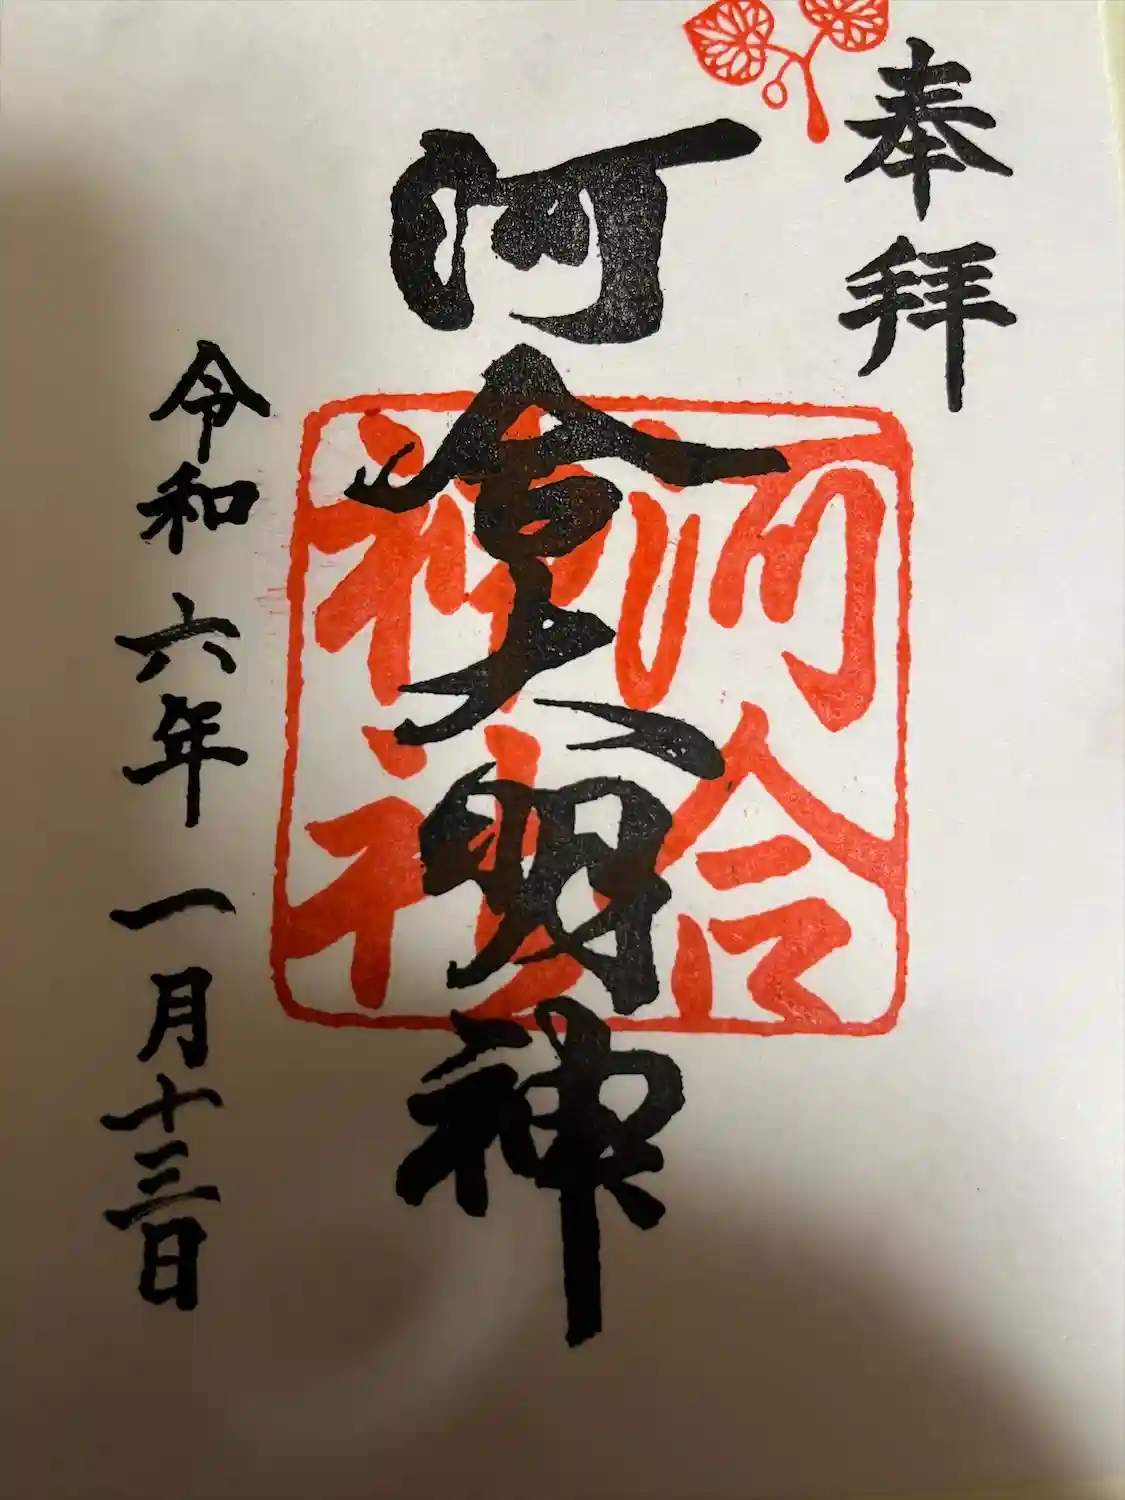 奉拝
河合大明神
河合神社
令和六年一月十三日